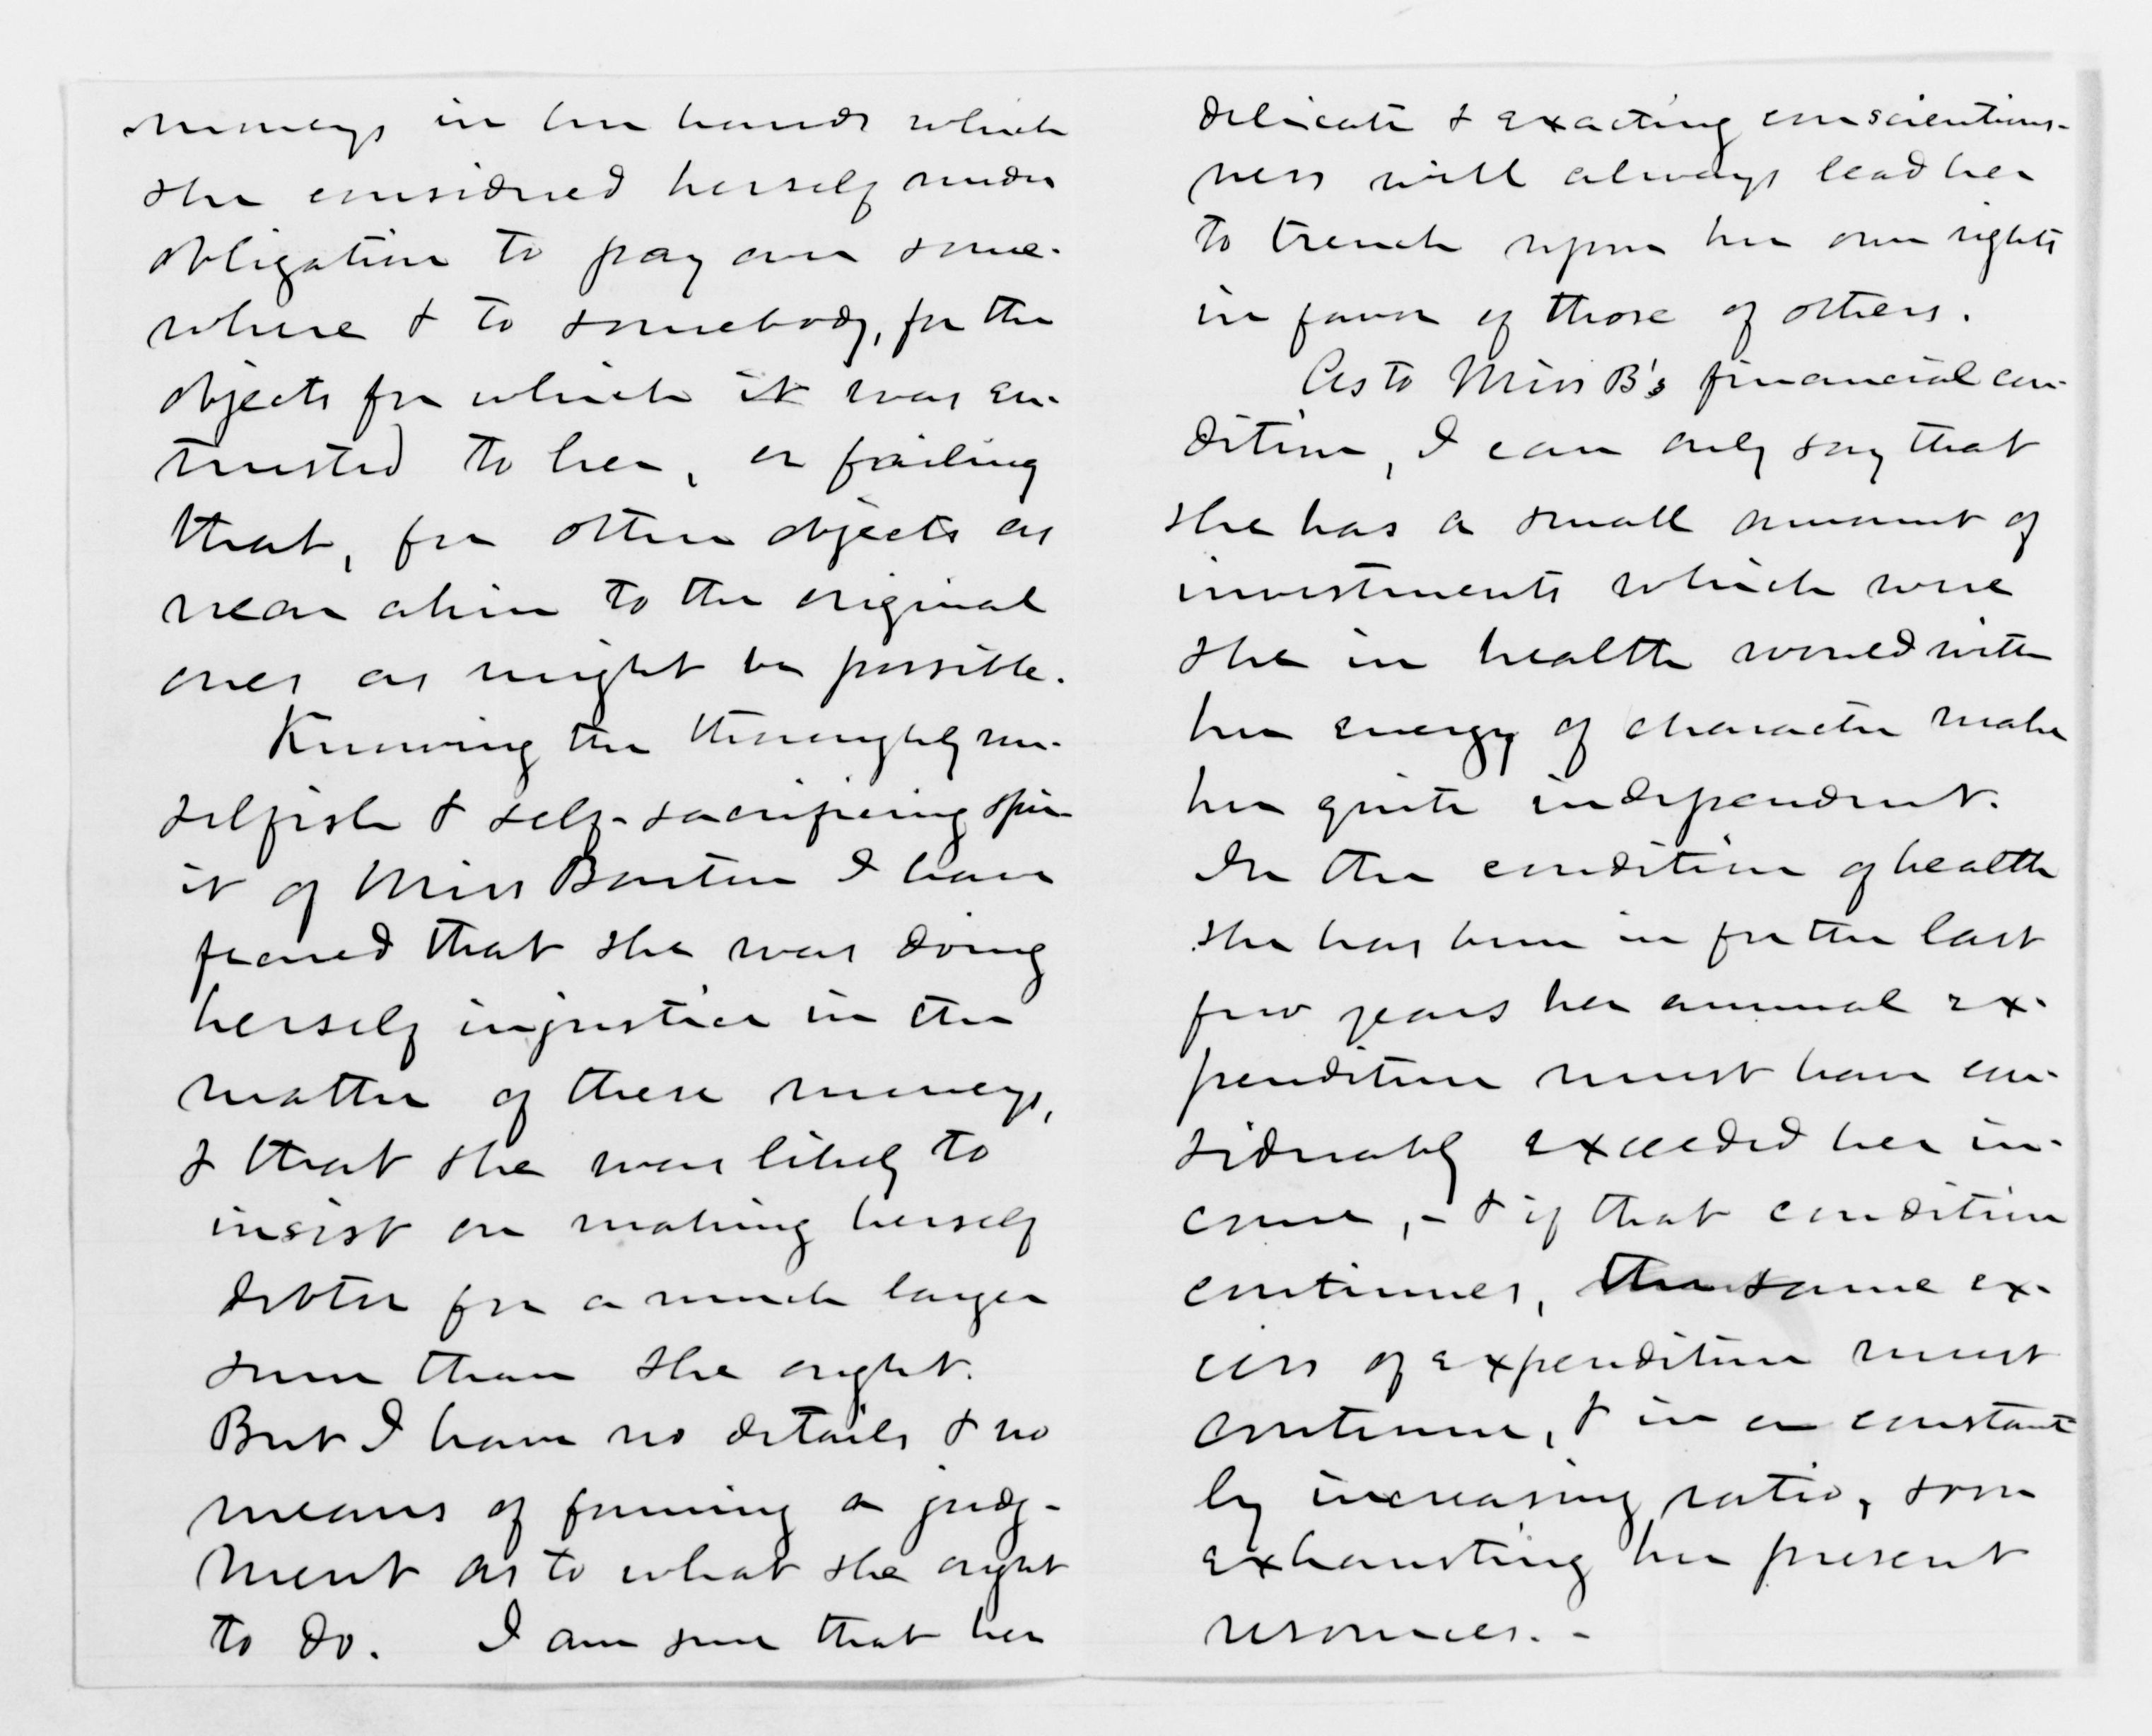 moneys in her hands which
she considered herself under
obligation to pay over some-
where & to somebody, for the
objects for which it was en-
trusted to her, or failing
that, for other objects as
near akin to the original
ones as might be possible.
Knowing the thoroughly un-
selfish & self-sacrificing spir-
it of Miss Barton I have
feared that she was doing
herself injustice in the
matter of these moneys,
& that she was likely to
insist on making herself
debtor for a much larger
sum than she ought.
But I have no details & no
means of forming a judg-
ment as to what she ought
to do. I am sure that her
delicate & exacting conscientious-
ness will always lead her
to trench upon her own rights
in favor of those of others.
As to Miss B's financial con-
dition, I can only say that
she has a small amount of
investments which were
she in health would with
her energy of character make
her quite independent.
In the condition of health
she has been in for the last
few years her annual ex-
penditure must have con-
siderably exceeded her in-
come, - & if that condition
continues, the same ex-
cess of expenditure must
continue, & in a constant
ly increasing ratio, soon
exhausting her present
resources. -